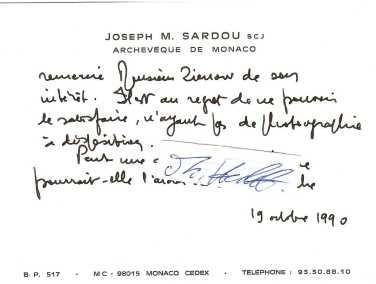 JOSEPH M. SARDOU SCJ
ARCHEVEQUE DE MONACO
remercie Monsieur de son
intérêt. Il est au regret de ne pouvoir
le satisfaire, n'ayant pas de photographie
à disposition.
Peut une
pourrait-elle
19 octobre 1990
B.P. 517 - MC - 98015 MONACO CEDEX - TELEPHONE : 93.50.88.10